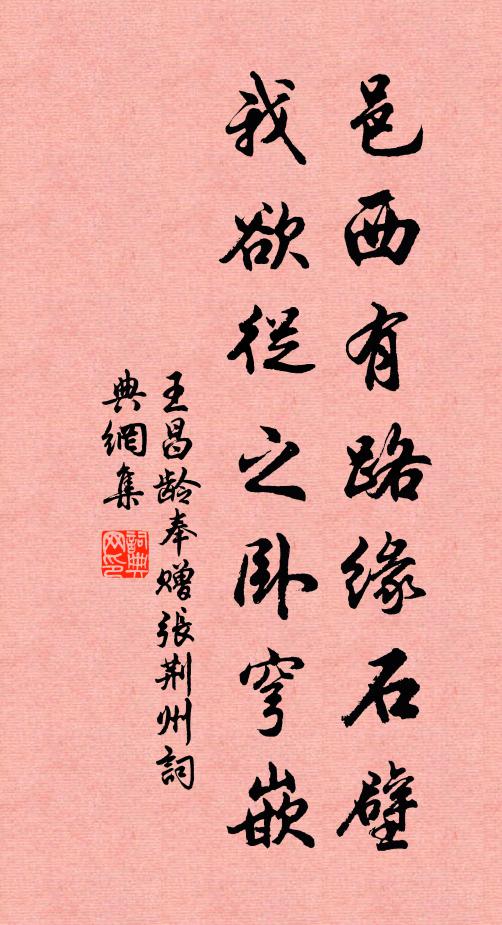 邑西有路缘石壁
我欲從之卧穹嵌
王昌齡奉赠張荆州詞
典網集
詞典
网印